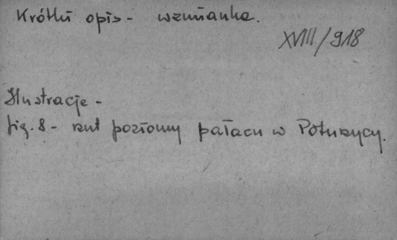 Krótki opis - wzmianka.
XVIII/918
Ilustracje -
fig. 8 - rzut poziomy pałacu w Poturzycy.